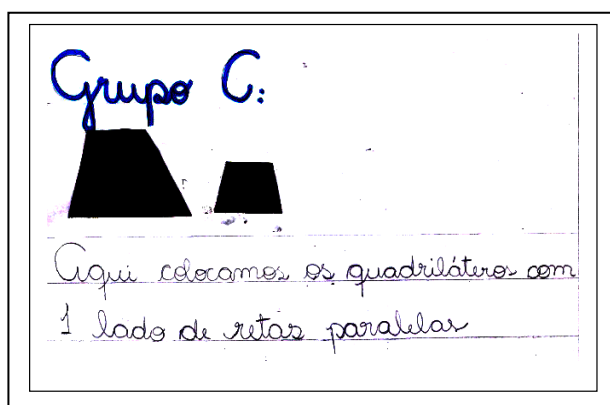 Grupo C:
Aqui colocamos os quadriláteros com
1 lado de retas paralelas